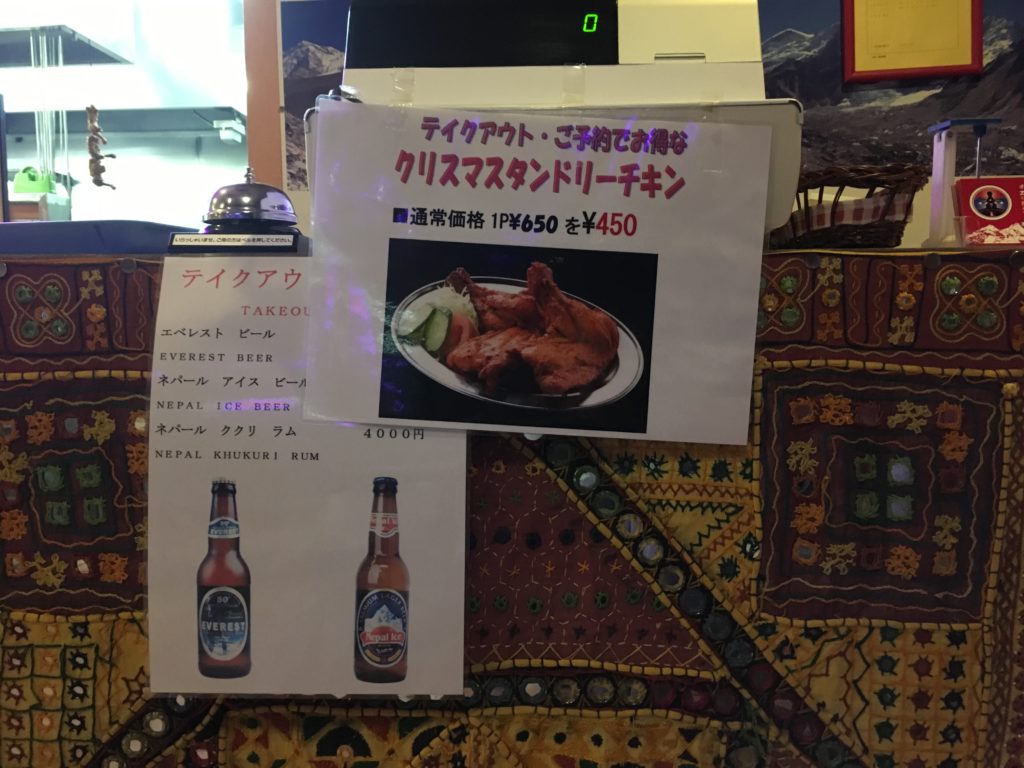 0
テイクアウト・ご予約でお得な
クリスマスタンドリーチキン
■通常価格 1P¥650 を¥450
いらっしゃいませ。ご用の方はベルを押してください。
テイクアウ
TAKEOU
エベレスト ビール
EVEREST BEER
ネパール アイス ビール
NEPAL ICE BEER
ネパール ククリ ラム 4000円
NEPAL KHUKURI RUM
EVEREST
Nepal Ice